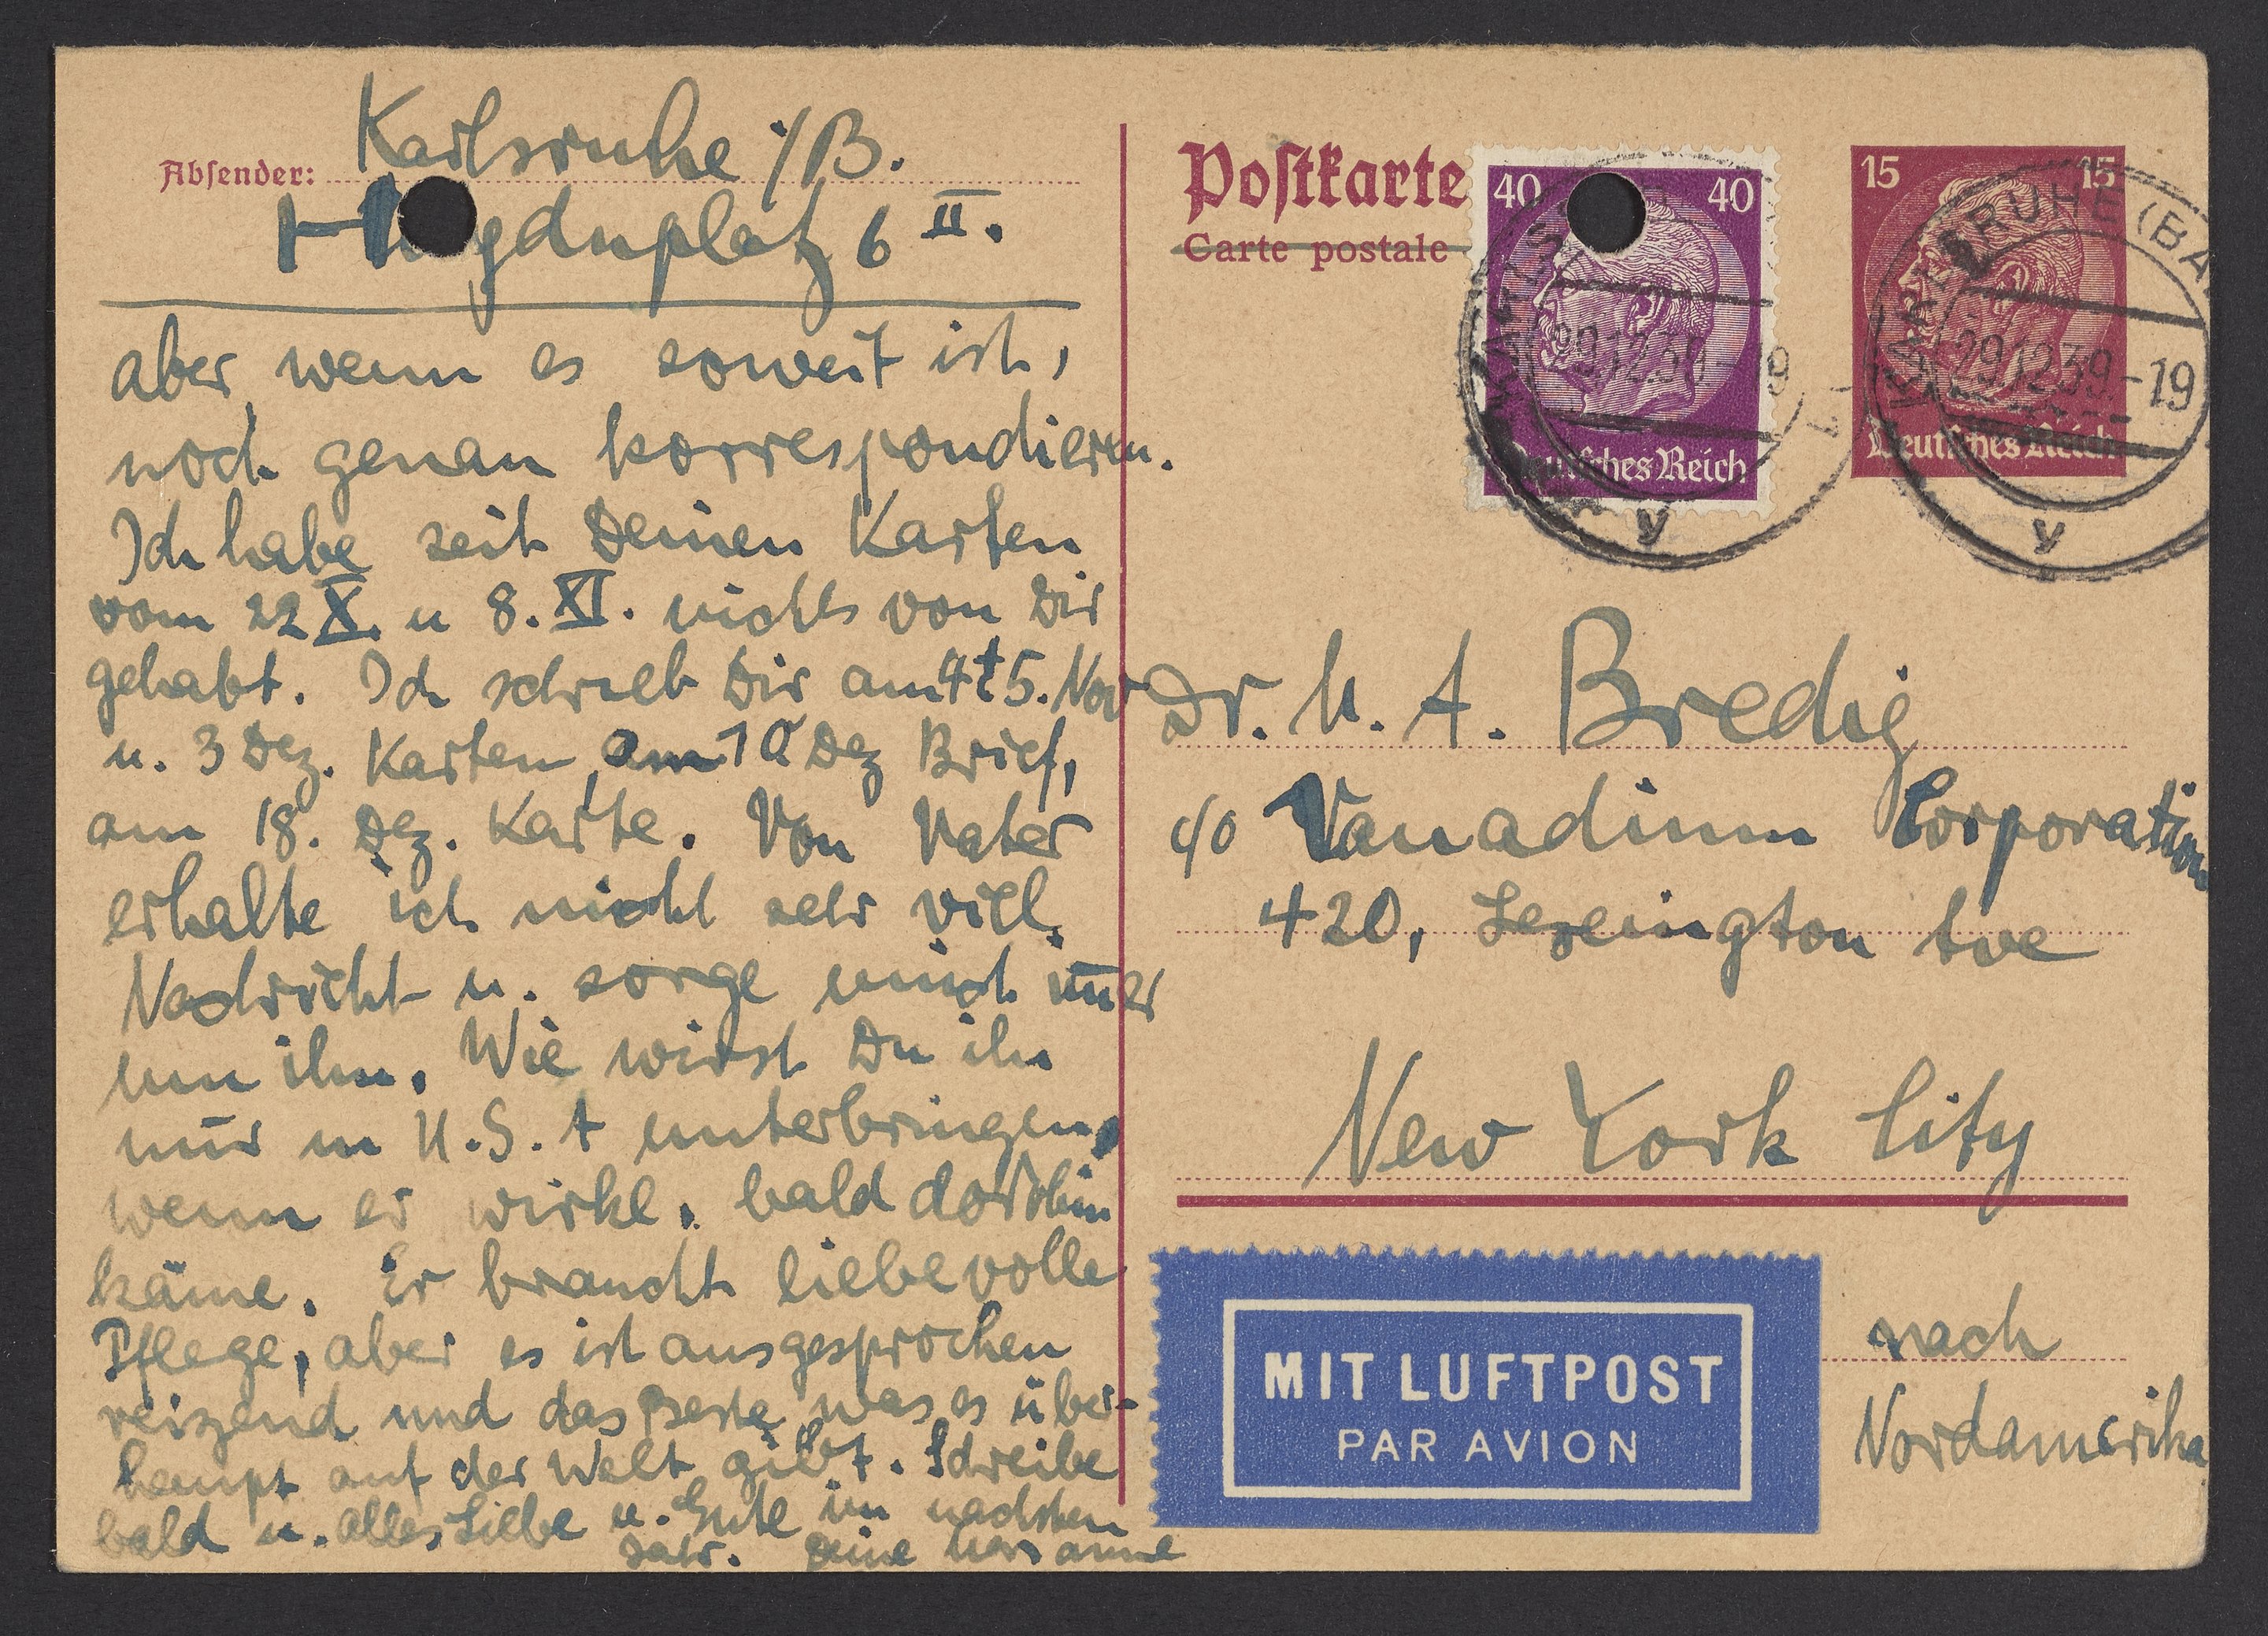 Absender: Karlsruhe i/B.
H ydnplatz 6 II.
aber wenn es soweit ist,
noch genau korrespondieren.
Ich habe seit Deinen Karten
vom 22 X. u 8. XI. nichts von Dir
gehabt. Ich schrieb Dir am 5. Nov
u. 3 Dez. Karten, am 10 Dez Brief,
am 18. Dez. Karte. Von Vater
erhalte ich nicht sehr viel
Nachricht u. sorge mich im̅er
um ihn. Wie wirst Du ihn
nur in U.S.A unterbringen,
wenn er wirkl. bald dorthin
käme. Er braucht liebevolle
Pflege, aber es ist ausgesprochen
reizend und das Beste was es über-
haupt auf der Welt gibt. Schreibe
bald u. alles Liebe u. Gute im nächsten
Jahr. Deine Marianne
Postkarte
Carte postale
40 40
Deutsches Reich
15 15
Deutsches Reich
KARLSRUHE
29.12.39.-19
y
KARLSRUHE (BA
29.12.39.-19
y
Dr. M. A. Bredig
c/o Vanadium Corporation
420, Lexington Ave
New York City
MIT LUFTPOST
PAR AVION
nach
Nordamerika